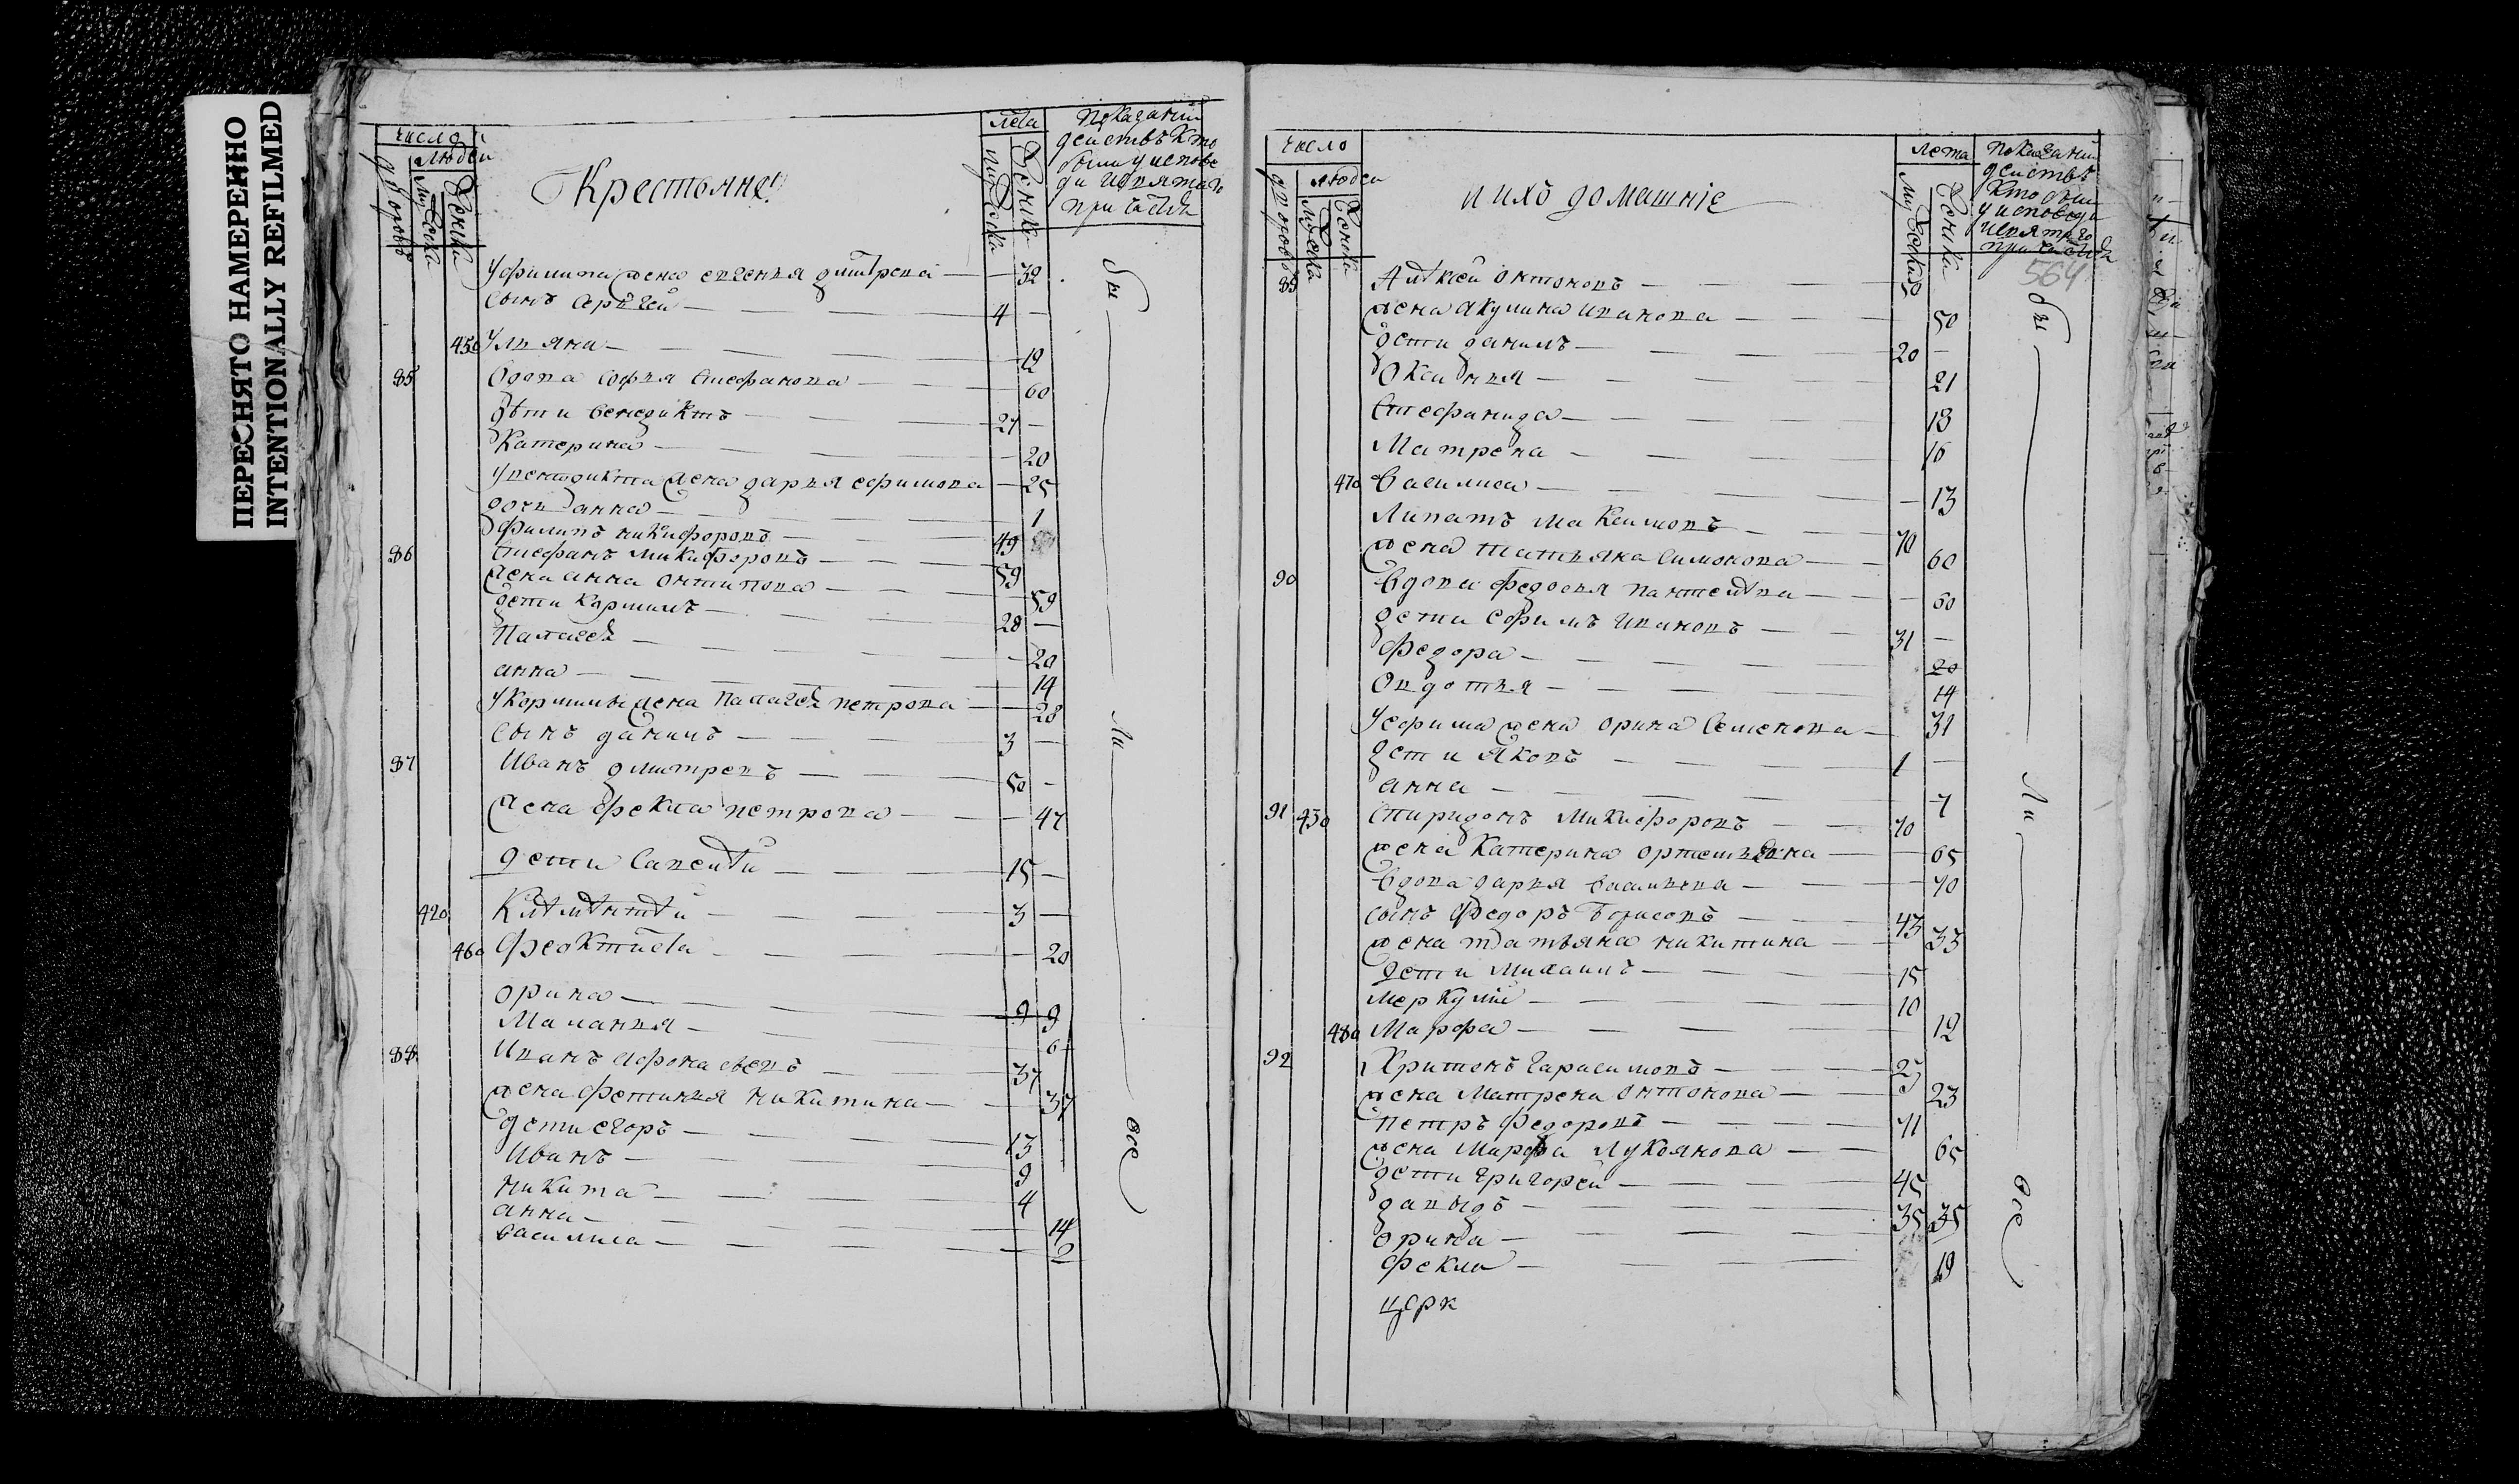 ПЕРЕСНЯТО НАМЕРЕННО
INTENTIONALLY REFILMED
число
людей
дворовъ
мужеска
женска
Крестьяне
лета
мужеска
женска
показании
действъ кто
были у испове
ди и святаго
причастия
У филипа жена евгения дмитрева — 32
сынъ сергей — 4 —
450 Ульяна — 12
85 вдова софия стефанова — 60
дети венедиктъ — 27 —
Катерина — 20
У венедикта жена дария ефимова — 25
дочь анна — 1
филипъ никифоровъ — 49
86 стефанъ микифоровъ — 59
жена анна онтипова — 59
дети кормилъ — 28 —
Палагея — 20
анна — 14
У кормилы жена палагея петрова — 28
сынъ данилъ — 3 —
87 Иванъ дмитревъ — 50 —
жена фекла петрова — 47
дети савелѣй — 15 —
420 Клѣмѣнтѣй — 3 —
460 Феоктиста — 20
орина — 9 9
Малания — 6
88 Иванъ афонасьевъ — 37
жена фетиния никитина — 37
дети егоръ — 13
Иванъ — 9
никита — 4
анна — 14
василиса — 2
бы
ли
все
число
людей
дворовъ
мужеска
женска
и ихъ домашніе
лета
мужеска
женска
показании
действъ
кто были
у исповеди
и святаго
причастия
564
89 Алѣксей онтоновъ — 50
жена акулина иванова — 50
дети данилъ — 20 —
Оксиния — 21
Стефанида — 18
Матрена — 16
470 василиса — 13
Липатъ максимовъ — 70
жена татьяна симонова — 60
90 вдова федосия пантелѣва — 60
дети ефимъ ивановъ — 31 —
Федора — 20
Овдотия — 14
У ефима жена орина семенова — 31
дети яковъ — 1 —
анна — 7
91 430 Спиридонъ микифоровъ — 70
жена катерина — 65
вдова дария василиева — 70
сынъ федоръ борисовъ — 43
жена татьяна никитина — 33
дети михаилъ — 15
меркулій — 10
480 Марфа — 12
92 Харитонъ гарасимовъ — 25
жена матрена онтонова — 23
петръ федоровъ — 71
жена марфа лукоянова — 65
дети григорей — 45
давыдъ — 35 35
орина —
фекла — 19
церк
бы
ли
все